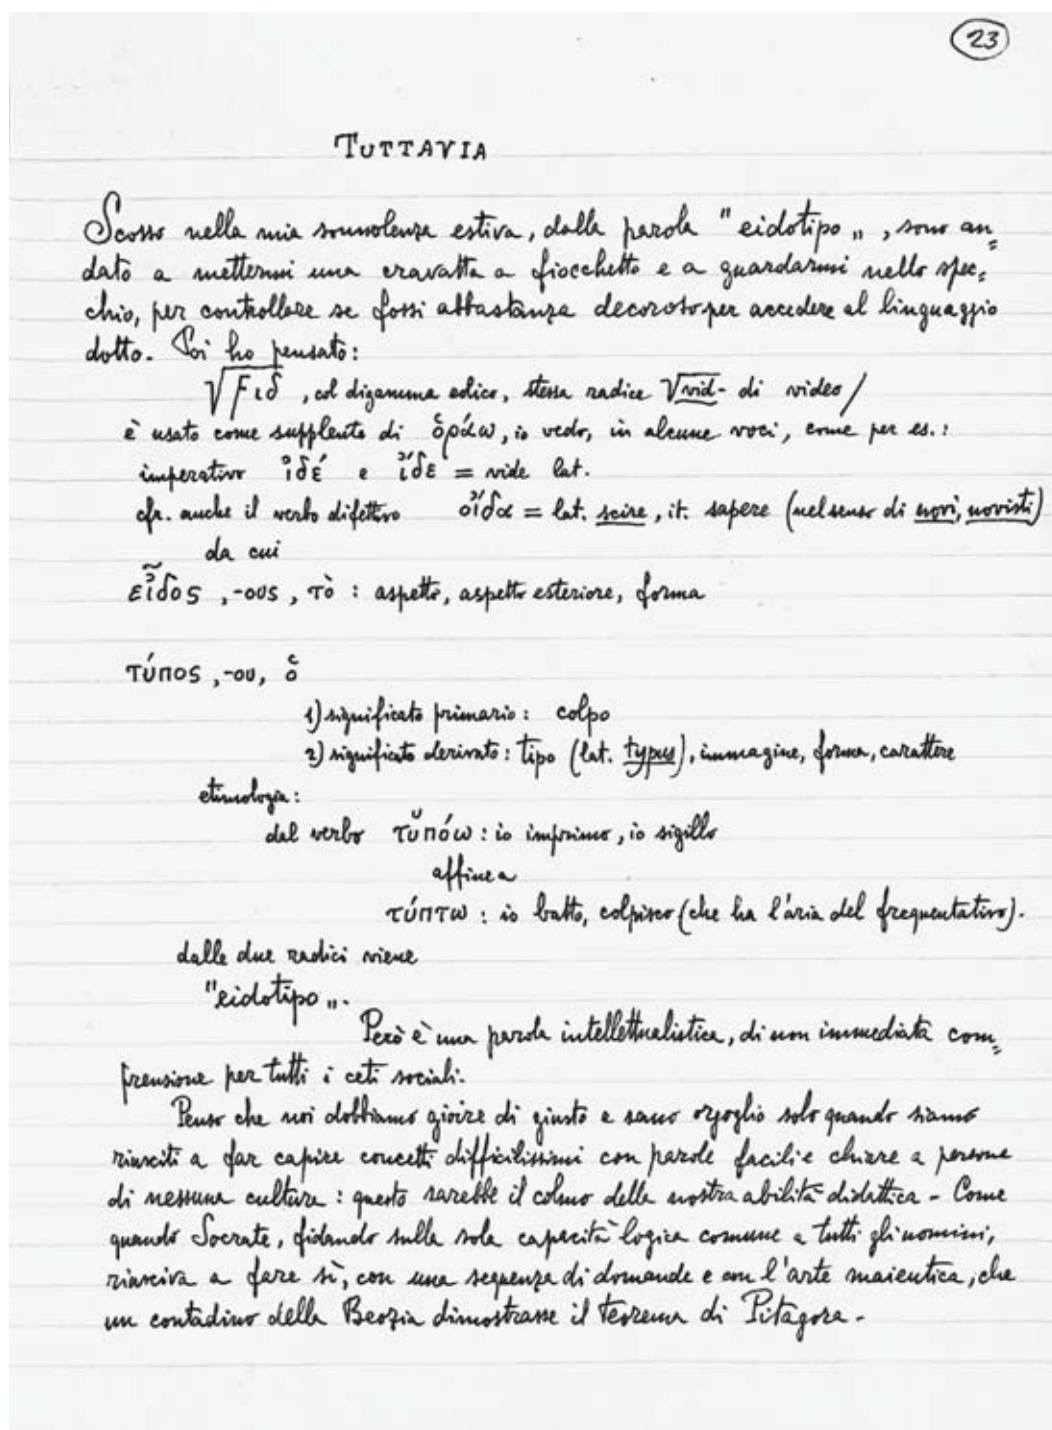 23
TUTTAVIA
Scosso nella mia sonnolenza estiva, dalla parola "eidotipo„, sono an=
dato a mettermi una cravatta a fiocchetto e a guardarmi nello spec=
chio, per controllare se fossi abbastanza decoroso per accedere al linguaggio
dotto. Poi ho pensato:
√Fιδ, col digamma eolico, stessa radice √vid- di video/
è usato come supplente di ὁράω, io vedo, in alcune voci, come per es.:
imperativo ἰδέ e ἴδε = vide lat.
cfr. anche il verbo difettivo οἴδα = lat. scire, it. sapere (nel senso di novi, novisti)
da cui
εἶδος, -ους, τὸ: aspetto, aspetto esteriore, forma
τύπος, -ου, ὁ
1) significato primario: colpo
2) significato derivato: tipo (lat. typus), immagine, forma, carattere
etimologia:
dal verbo τῠπόω: io imprimo, io sigillo
affine a
τύπτω: io batto, colpisco (che ha l'aria del frequentativo).
dalle due radici viene
"eidotipo„.
Però è una parola intellettualistica, di non immediata com=
prensione per tutti i ceti sociali.
Penso che noi dobbiamo gioire di giusto e sano orgoglio solo quando siamo
riusciti a far capire concetti difficilissimi con parole facili e chiare a persone
di nessuna cultura: questo sarebbe il colmo della nostra abilità didattica - Come
quando Socrate, fidando sulla sola capacità logica comune a tutti gli uomini,
riusciva a fare sì, con una sequenza di domande e con l'arte maieutica, che
un contadino della Beozia dimostrasse il teorema di Pitagora -